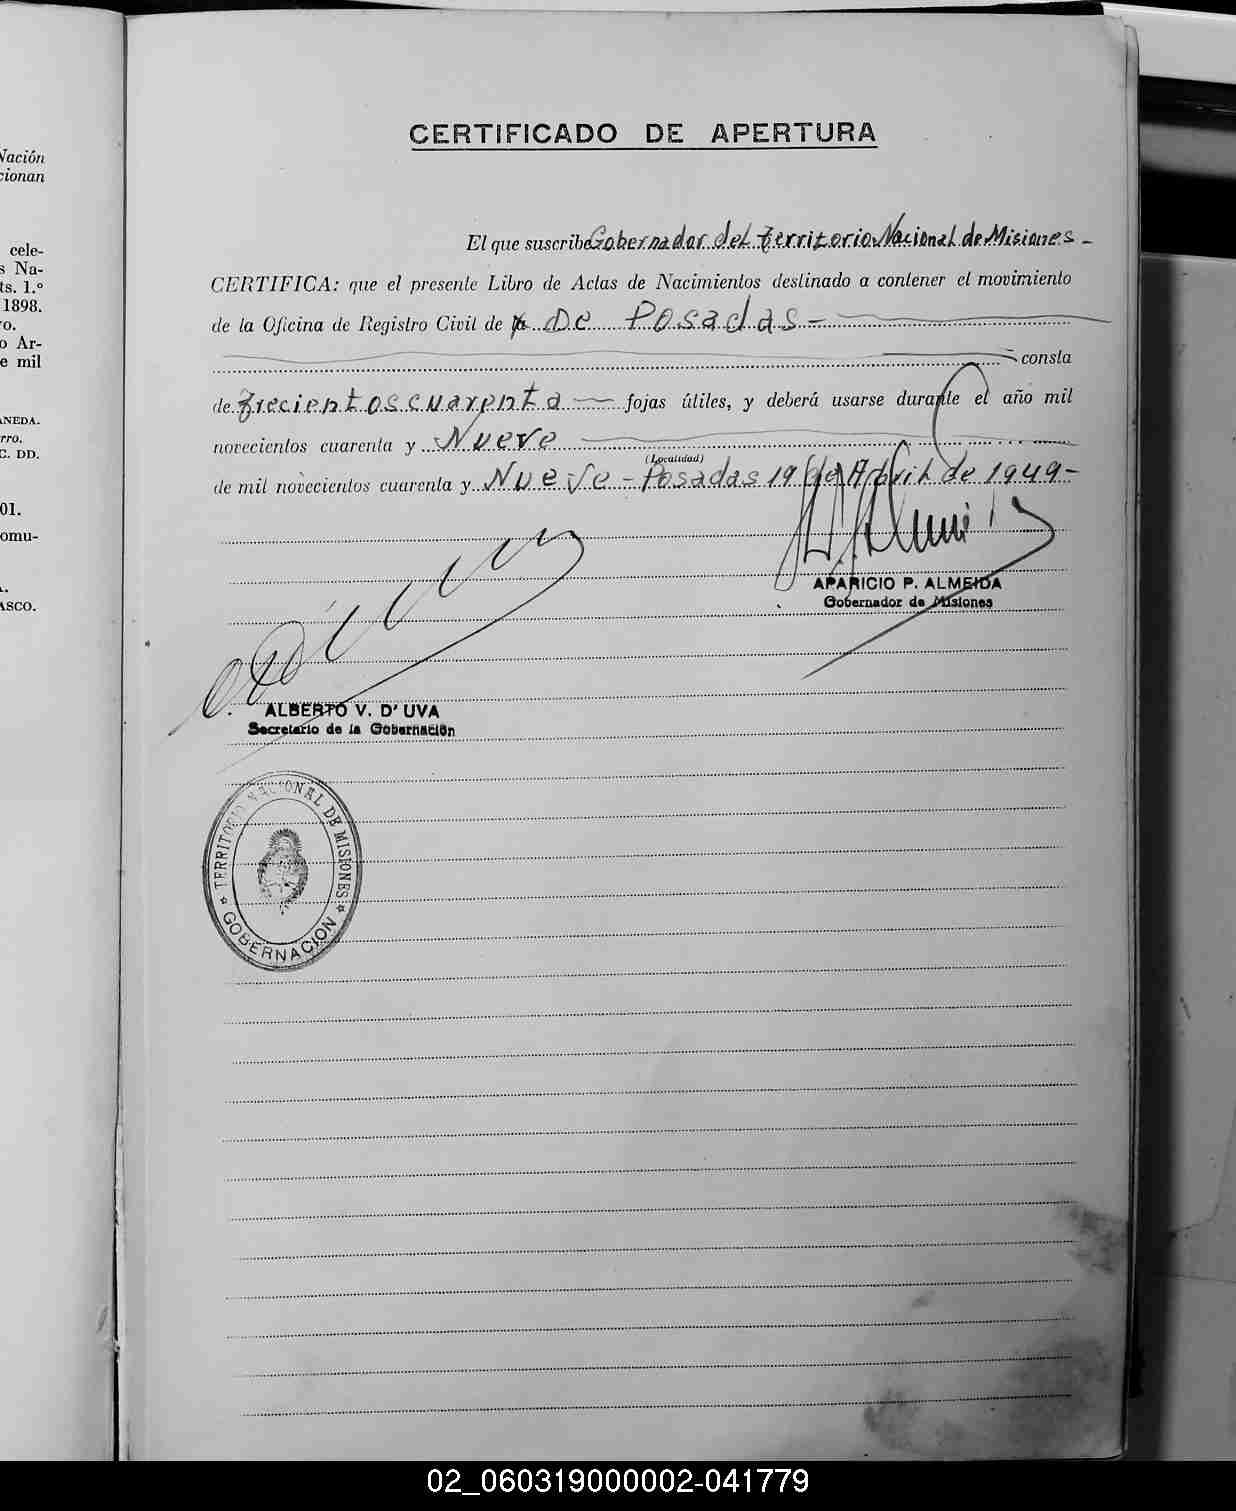 Nación
cionan
cele-
s Na-
ts. 1.º
1898.
ro.
o Ar-
e mil
ANEDA.
rro.
C. DD.
01.
omu-
A.
ASCO.
CERTIFICADO DE APERTURA
El que suscribe Gobernador del Territorio Nacional de Misiones -
CERTIFICA: que el presente Libro de Actas de Nacimientos destinado a contener el movimiento
de la Oficina de Registro Civil de De Posadas -
consta
de Trecientos cuarenta — fojas útiles, y deberá usarse durante el año mil
novecientos cuarenta y Nueve
(Localidad)
de mil novecientos cuarenta y Nueve - Posadas 19 de Abril de 1949 -
APARICIO P. ALMEIDA
Gobernador de Misiones
ALBERTO V. D' UVA
Secretario de la Gobernación
TERRITORIO NACIONAL DE MISIONES
GOBERNACION
02_060319000002-041779